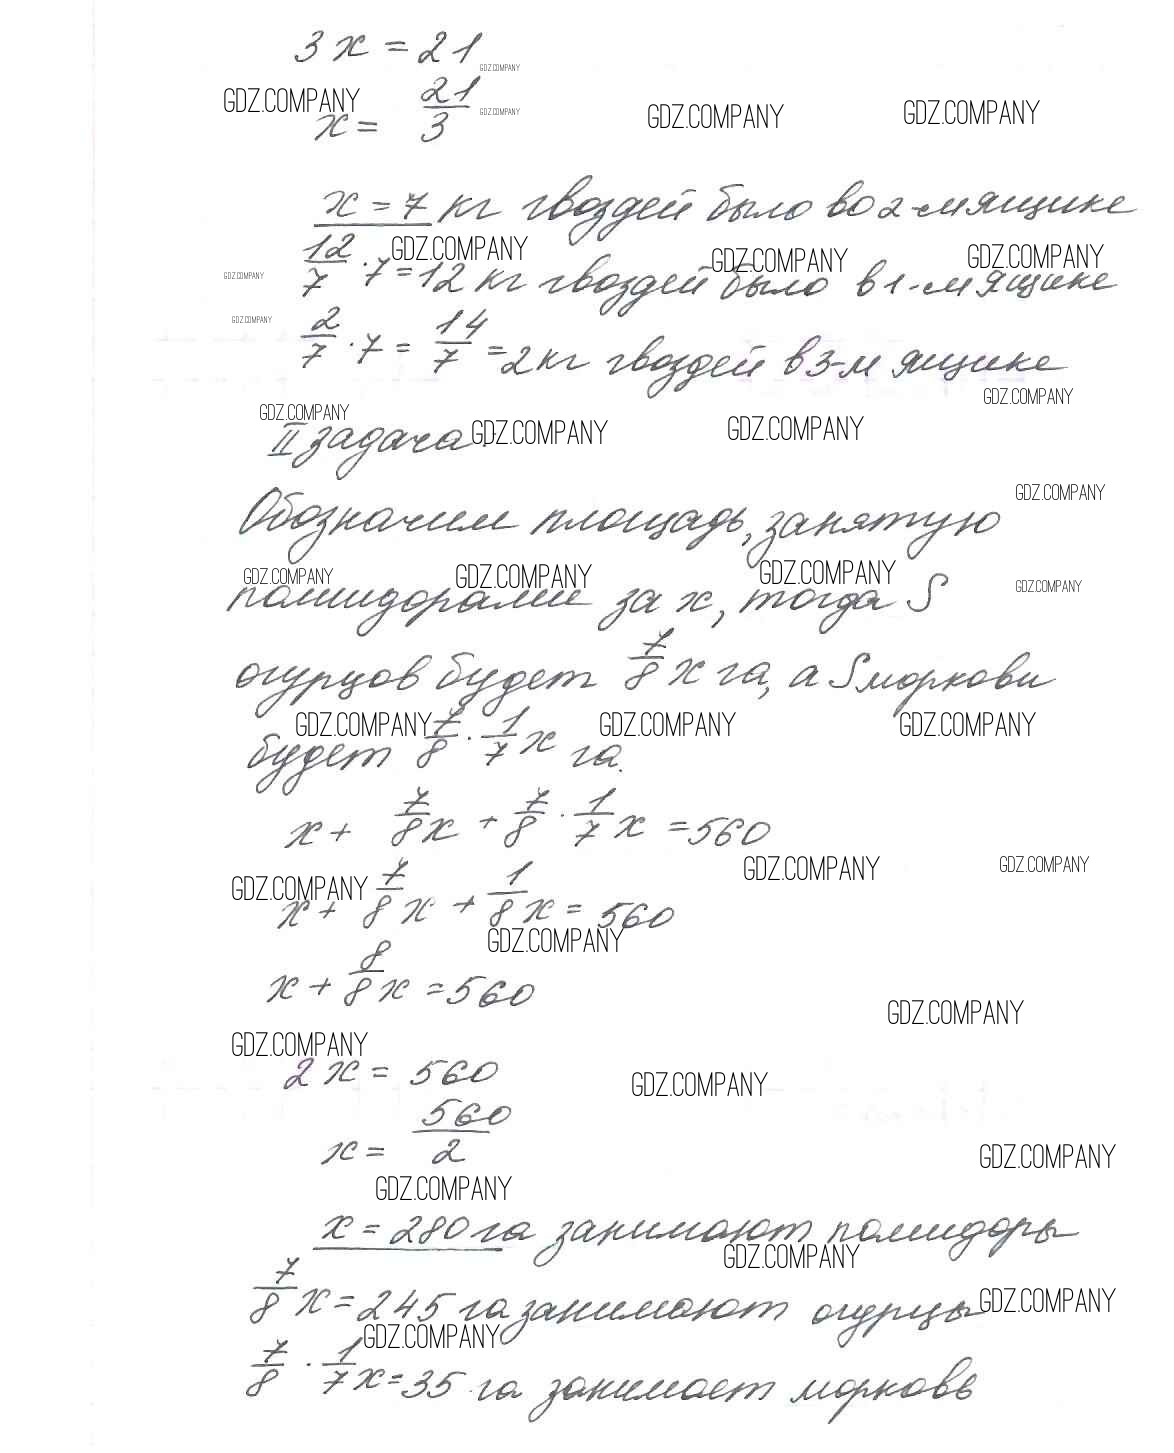 3x = 21
GDZ.COMPANY
x = 21/3
GDZ.COMPANY GDZ.COMPANY GDZ.COMPANY GDZ.COMPANY
x = 7 кг гвоздей было во 2-м ящике
GDZ.COMPANY GDZ.COMPANY GDZ.COMPANY
12/7 · 7 = 12 кг гвоздей было в 1-м ящике
GDZ.COMPANY
GDZ.COMPANY
2/7 · 7 = 14/7 = 2 кг гвоздей в 3-м ящике
GDZ.COMPANY
GDZ.COMPANY GDZ.COMPANY GDZ.COMPANY
II задача
GDZ.COMPANY
Обозначим площадь, занятую
GDZ.COMPANY GDZ.COMPANY GDZ.COMPANY GDZ.COMPANY
помидорами за x, тогда S
огурцов будет 7/8 x га, а S моркови
GDZ.COMPANY GDZ.COMPANY GDZ.COMPANY
будет 7/8 · 1/7 x га.
x + 7/8 x + 7/8 · 1/7 x = 560
GDZ.COMPANY GDZ.COMPANY GDZ.COMPANY
x + 7/8 x + 1/8 x = 560
GDZ.COMPANY
x + 8/8 x = 560
GDZ.COMPANY
GDZ.COMPANY
2x = 560
GDZ.COMPANY
x = 560/2
GDZ.COMPANY
GDZ.COMPANY
x = 280 га занимают помидоры
GDZ.COMPANY
7/8 x = 245 га занимают огурцы
GDZ.COMPANY
GDZ.COMPANY
7/8 · 1/7 x = 35 га занимает морковь